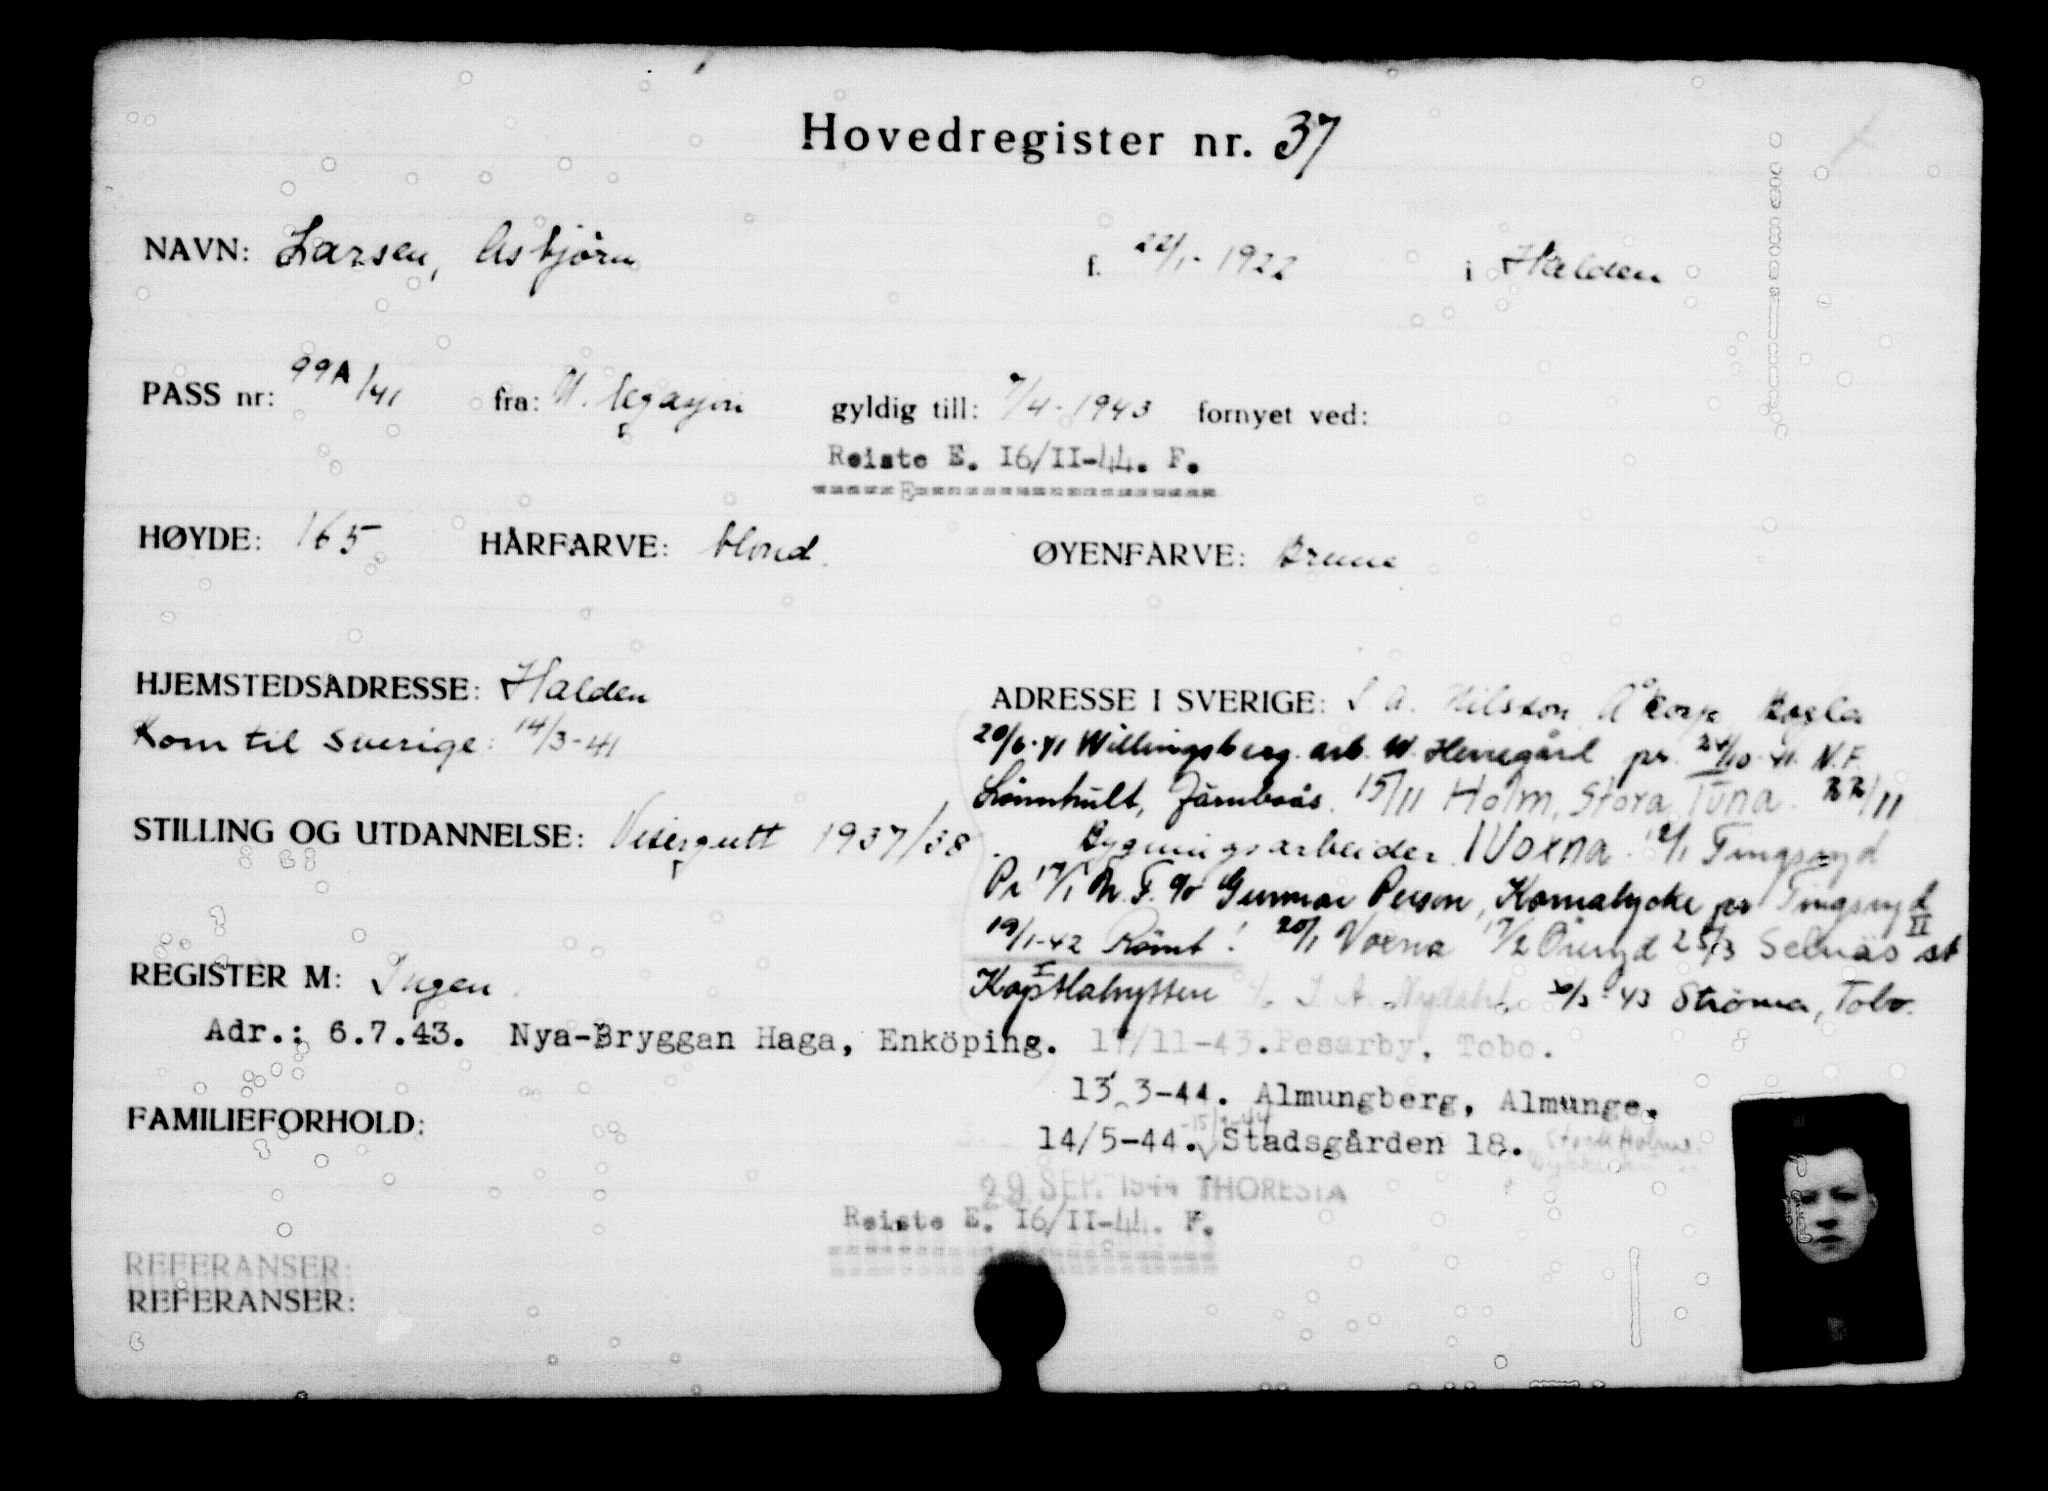 Hovedregister nr. 37
NAVN: Larsen, Asbjörn f. 22/1-1922 i Halden
PASS nr: 99A/41 fra: N. legasjon gyldig till: 7/4-1943 fornyet ved:
Reiste E. I6/II-44. F.
HØYDE: 165 HÅRFARVE: blond. ØYENFARVE: brune
HJEMSTEDSADRESSE: Halden ADRESSE I SVERIGE: Nilsson
Kom til Sverige: 14/3-41 20/6-41 Willingsberg. arb. W. Herregård pr. 24/10-41 N.F.
Lönnhult, Järnboås. 15/11 Holm, Stora Tuna. 22/11
STILLING OG UTDANNELSE: Visergutt 1937/38. Bygningsarbeider. Voxna. 12/1 Tingsryd
Pr 17/1 N.F. c/o Gunnar Person, Kornalycke pr Tingsryd II
19/1-42 Römt! 20/1 Voxna 17/2 25/3 Selnäs st
REGISTER M: Ingen. Kapstahyttan I. A. Nydahl. 30/3-43 Ströma, Tobo.
Adr.: 6.7.43. Nya-Bryggan Haga, Enköping. 17/11-43. Pesarby, Tobo.
13.3-44. Almungberg, Almunge.
FAMILIEFORHOLD:
14/5-44. Stadsgården 18. Stockholm.
29 SEP. 1944 THORESTA
Reiste E. I6/II-44. F.
REFERANSER:
REFERANSER: